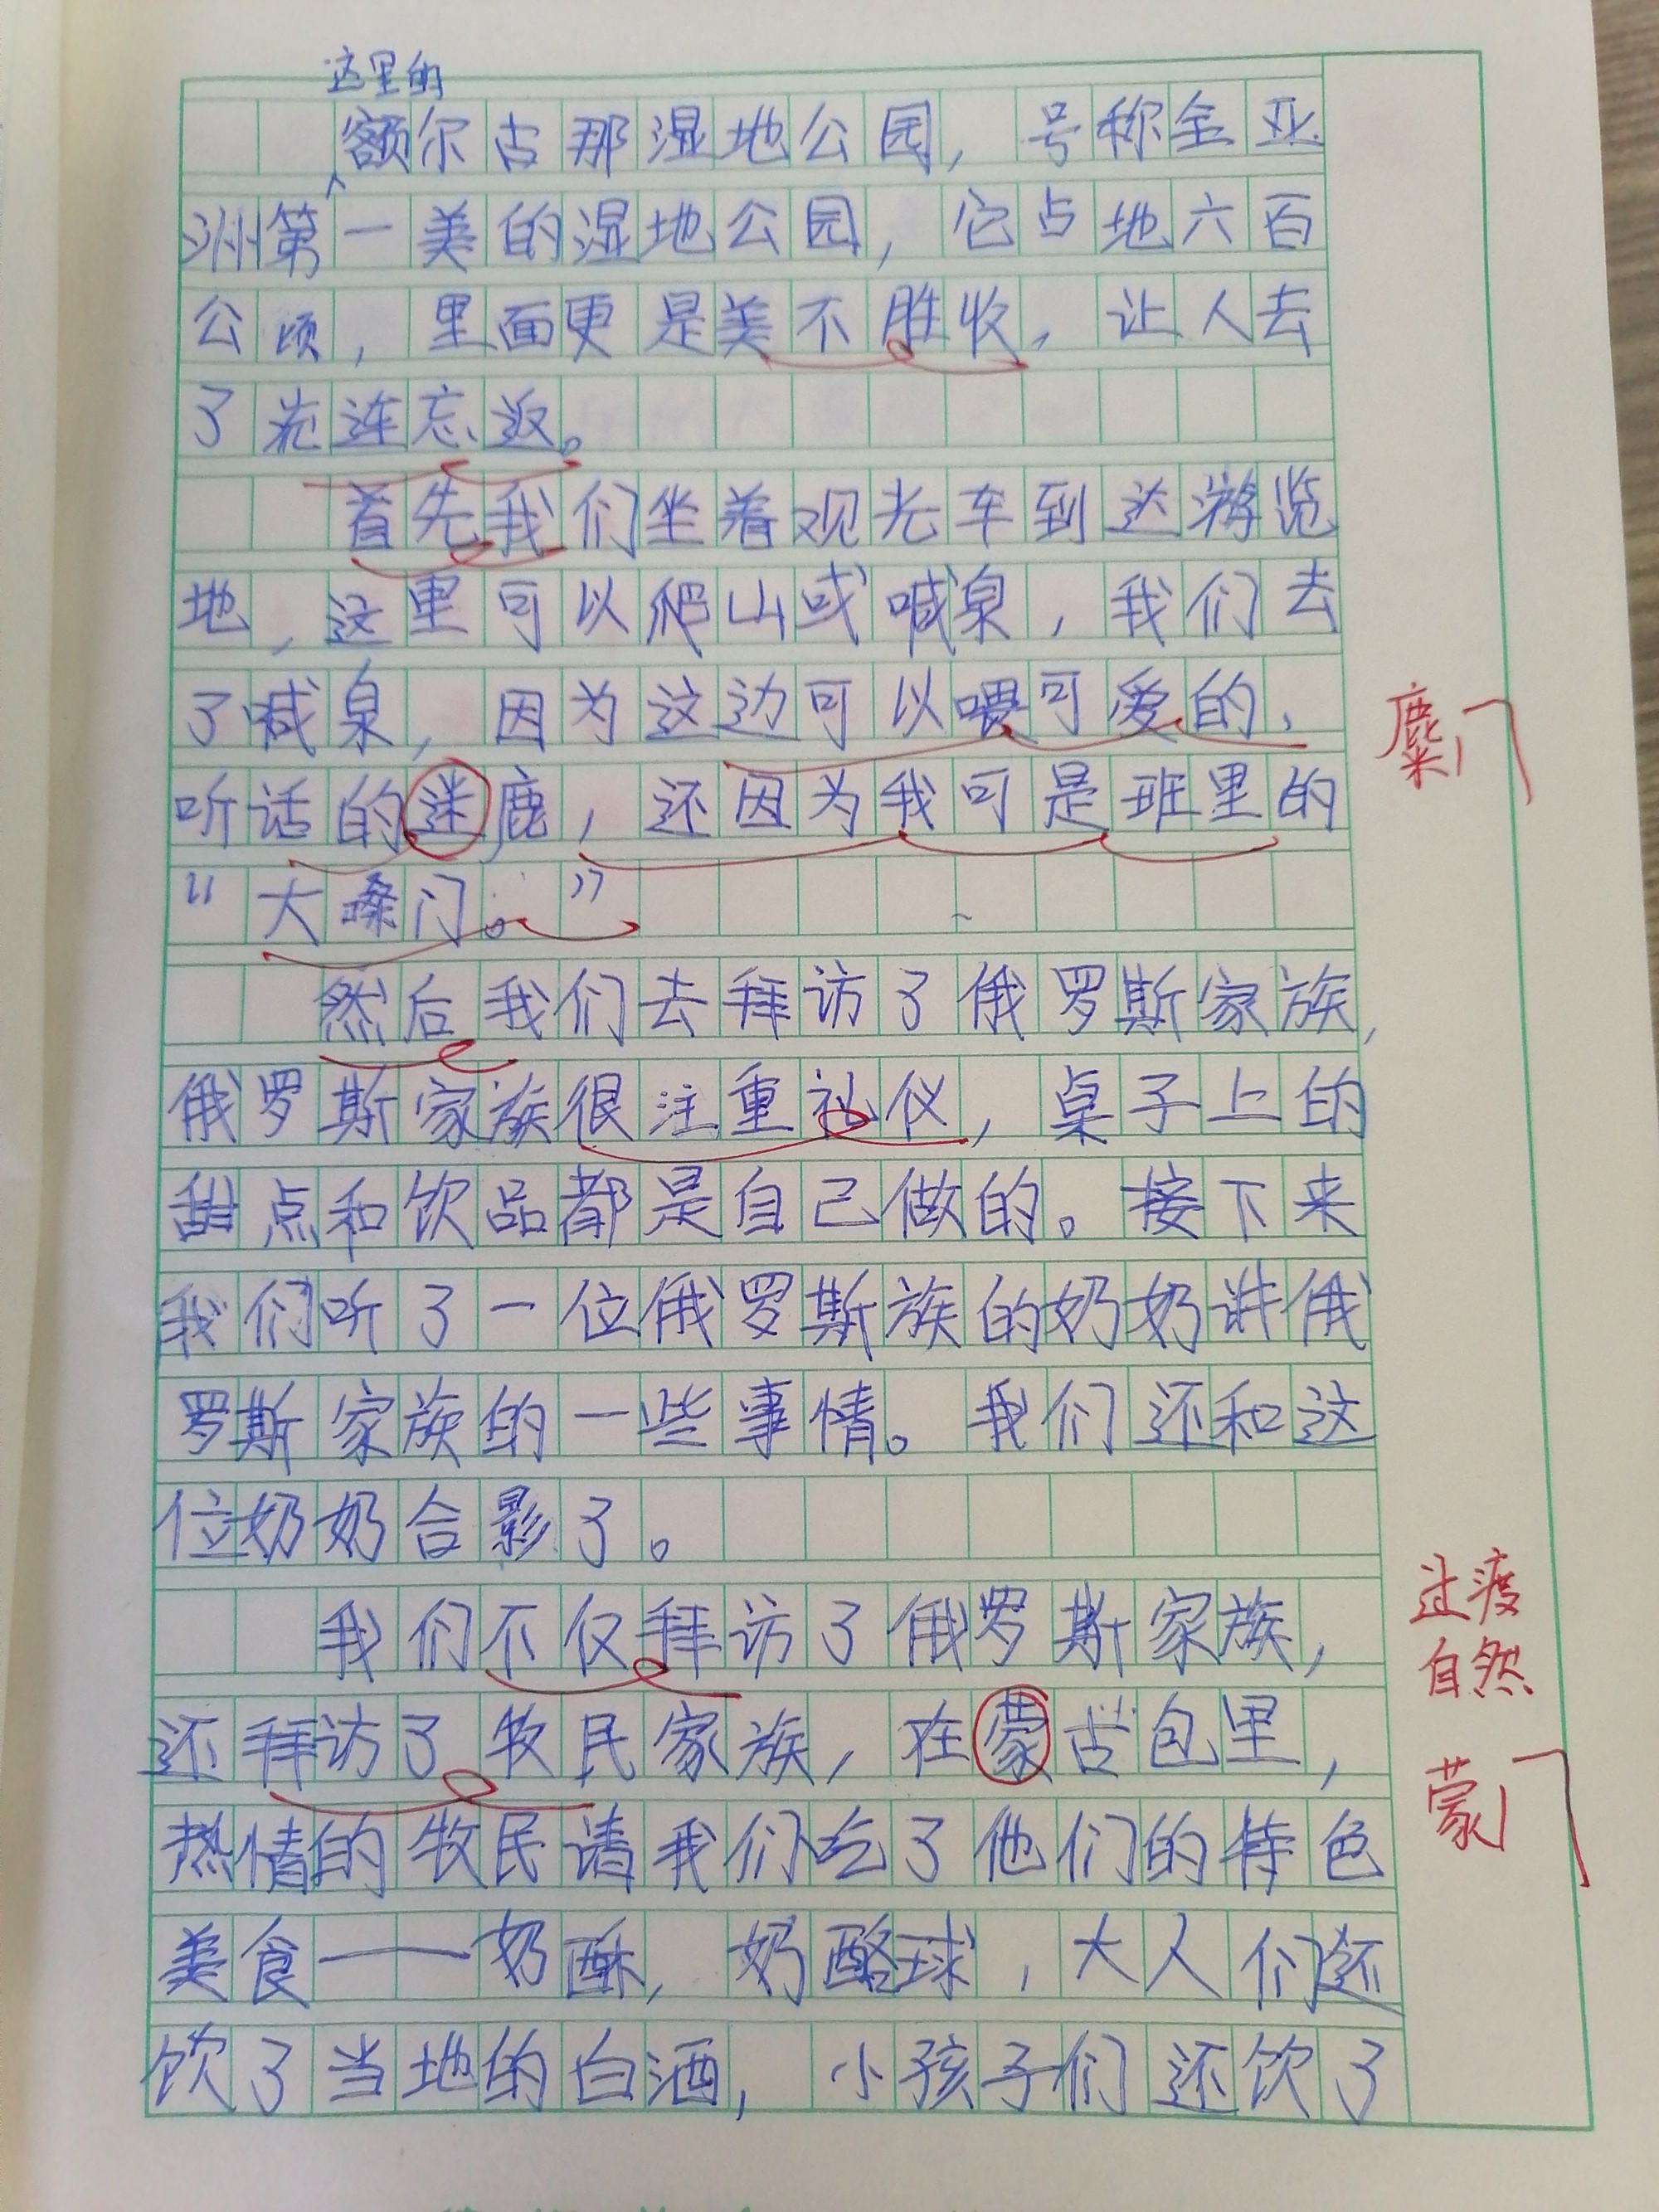 这里的
额尔古那湿地公园，号称全亚
洲第一美的湿地公园，它占地六百
公顷，里面更是美不胜收，让人去
了流连忘返。
首先我们坐着观光车到达游览
地，这里可以爬山或喊泉，我们去
了喊泉，因为这边可以喂可爱的、
麋
听话的迷鹿，还因为我可是班里的
“大嗓门。”
然后我们去拜访了俄罗斯家族，
俄罗斯家族很注重礼仪，桌子上的
甜点和饮品都是自己做的。接下来
我们听了一位俄罗斯族的奶奶讲俄
罗斯家族的一些事情。我们还和这
位奶奶合影了。
我们不仅拜访了俄罗斯家族，
过渡
自然
还拜访了牧民家族，在蒙古包里，
蒙
热情的牧民请我们吃了他们的特色
美食——奶酥，奶酪球，大人们还
饮了当地的白酒，小孩子们还饮了